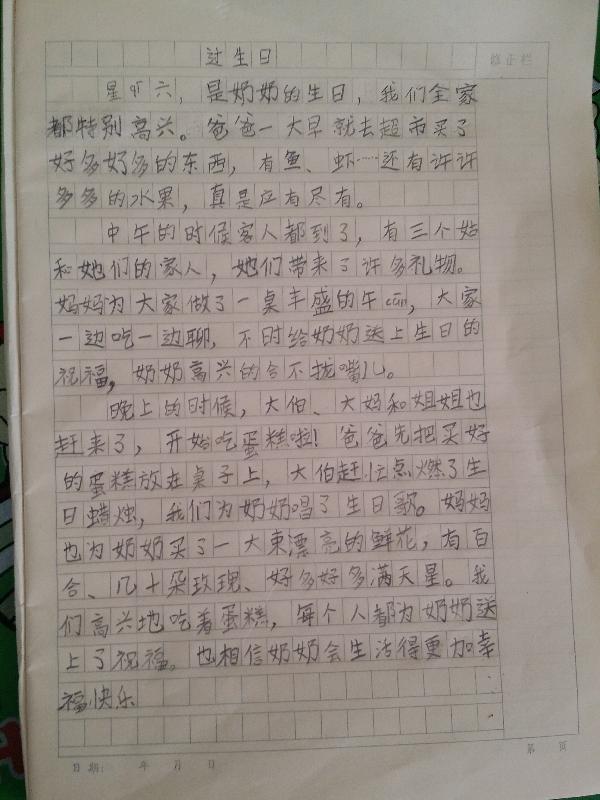 过生日
修正栏
星期六，是奶奶的生日，我们全家
都特别高兴。爸爸一大早就去超市买了
好多好多的东西，有鱼、虾……还有许许
多多的水果，真是应有尽有。
中午的时候客人都到了，有三个姑
和她们的家人，她们带来了许多礼物。
妈妈为大家做了一桌丰盛的午cān，大家
一边吃一边聊，不时给奶奶送上生日的
祝福，奶奶高兴的合不拢嘴儿。
晚上的时候，大伯、大妈和姐姐也
赶来了，开始吃蛋糕啦！爸爸先把买好
的蛋糕放在桌子上，大伯赶忙点燃了生
日蜡烛，我们为奶奶唱了生日歌。妈妈
也为奶奶买了一大束漂亮的鲜花，有百
合、几十朵玫瑰、好多好多满天星。我
们高兴地吃着蛋糕，每个人都为奶奶送
上了祝福。也相信奶奶会生活得更加幸
福快乐
第 页
日期： 年 月 日